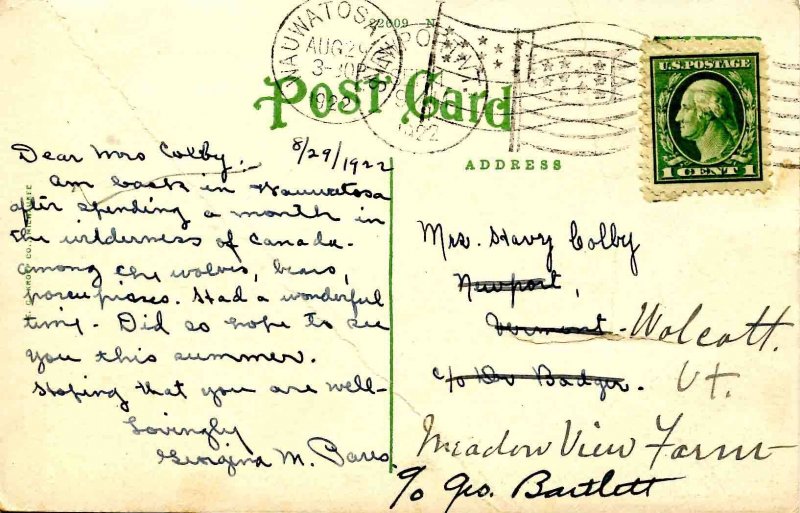 22609 N
WAUWATOSA
AUG 29
3-30P
1922
WIS.
Post Card
ADDRESS
U.S. POSTAGE
1 CENT 1
8/29/1922
Dear Mrs Colby,
Am back in Wauwatosa
after spending a month in
the wilderness of Canada-
among the wolves, bears,
porcupines. Had a wonderful
time. Did so hope to see
you this summer.
Hoping that you are well-
Lovingly
Georgina M.
Mrs. Harry Colby
Newport,
Vermont - Wolcott.
c/o Dr Badger. Vt.
Meadow View Farm
c/o Geo. Bartlett